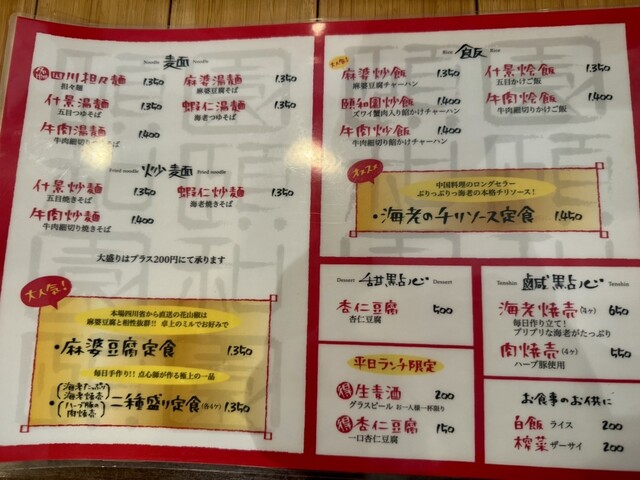 Noodle 麺 Noodle
四川担々麺 1.350
担々麺
什景湯麺 1.350
五目つゆそば
牛肉湯麺 1.400
牛肉細切りつゆそば
麻婆湯麺 1.350
麻婆豆腐そば
蝦仁湯麺 1.350
海老つゆそば
Fried noodle 炒麺 Fried noodle
什景炒麺 1.350
五目焼きそば
牛肉炒麺 1.400
牛肉細切り焼きそば
蝦仁炒麺 1.350
海老焼きそば
大盛りはプラス200円にて承ります
大人気!
本場四川省から直送の花山椒は
麻婆豆腐と相性抜群!! 卓上のミルでお好みで
・麻婆豆腐定食 1.350
毎日手作り!! 点心師が作る極上の一品
・(海老たっぷり海老焼売 ハーブ豚の肉焼売) 二種盛り定食(各4ケ) 1.350
Rice 飯 Rice
大人気!
麻婆炒飯 1.350
麻婆豆腐チャーハン
頤和園炒飯 1.400
ズワイ蟹肉入り餡かけチャーハン
牛肉炒飯 1.400
牛肉細切り餡かけチャーハン
什景烩飯 1.350
五目かけご飯
牛肉烩飯 1.400
牛肉細切りかけご飯
オススメ
中国料理のロングセラー
ぷりっぷりっ海老の本格チリソース!
・海老のチリソース定食 1.450
Dessert 甜點心 Dessert
杏仁豆腐 500
杏仁豆腐
平日ランチ限定
得 生麦酒 200
グラスビール お一人様一杯限り
得 杏仁豆腐 150
一口杏仁豆腐
Tenshin 鹹點心 Tenshin
海老焼売(4ヶ) 650
毎日作り立て!
プリプリな海老がたっぷり
肉焼売(4ヶ) 550
ハーブ豚使用
お食事のお供に
白飯 ライス 200
榨菜 ザーサイ 200